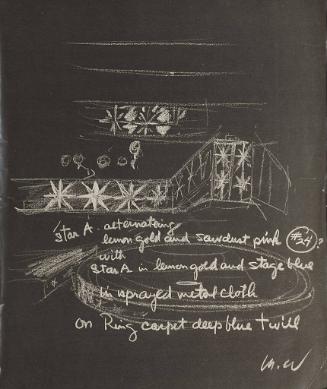 Star A. alternating
lemon gold and sawdust pink #34?
with
Star A in lemon gold and stage blue
in sprayed metal cloth
on Ring carpet deep blue twill